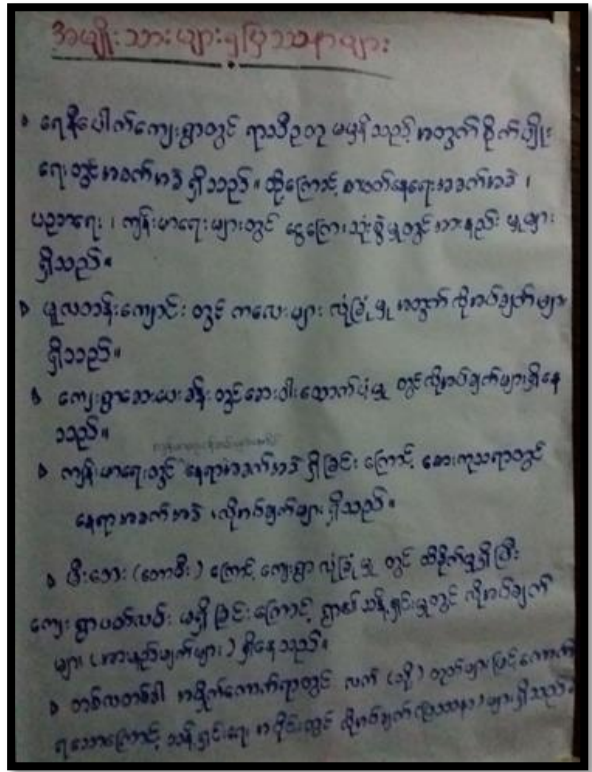 အမျိုးသားများ၏ပြဿနာများ
ရေနီပေါက်ကျေးရွာတွင် ရာသီဥတု မမှန်သည့် အတွက် စိုက်ပျိုး
ရေးတွင် အခက်အခဲ ရှိသည်။ ထို့ကြောင့် စားဝတ်နေရေးအခက်အခဲ ၊
ပညာရေး ၊ ကျန်းမာရေးများတွင် ငွေကြေးသုံးစွဲမှုတွင် အားနည်း မှုများ
ရှိသည်။
မူလတန်းကျောင်း တွင် ကလေးများ လုံခြုံမှု အတွက် လိုအပ်ချက်များ
ရှိသည်။
ကျေးရွာဆေးပေးခန်း တွင်ဆေးဝါးထောက်ပံ့မှု တွင်လိုအပ်ချက်များရှိနေ
သည်။
ကျန်းမာရေးတွင် နေရာအခက်အခဲ ရှိခြင်း ကြောင့် ဆေးကုသရာတွင်
နေရာအခက်အခဲ ၊လိုအပ်ချက်များ ရှိသည်။
မီးဘေး (တောမီး) ကြောင့် ကျေးရွာ လုံခြုံမှု တွင် ထိခိုက်မှုရှိပြီး
ကျေးရွာပတ်လမ်း မရှိခြင်းကြောင့် ရွာ သန့်ရှင်းမှုတွင် လိုအပ်ချက်
များ (အားနည်းချက်များ) ရှိနေသည်။
တစ်လတစ်ခါ အမှိုက်ကောက်ရာတွင် လက် (သို့) တုတ်များဖြင့်ကောက်
ရသောကြောင့် သန့်ရှင်းရေး အပိုင်းတွင် လိုအပ်ချက် (ပြဿနာ) များရှိသည်။